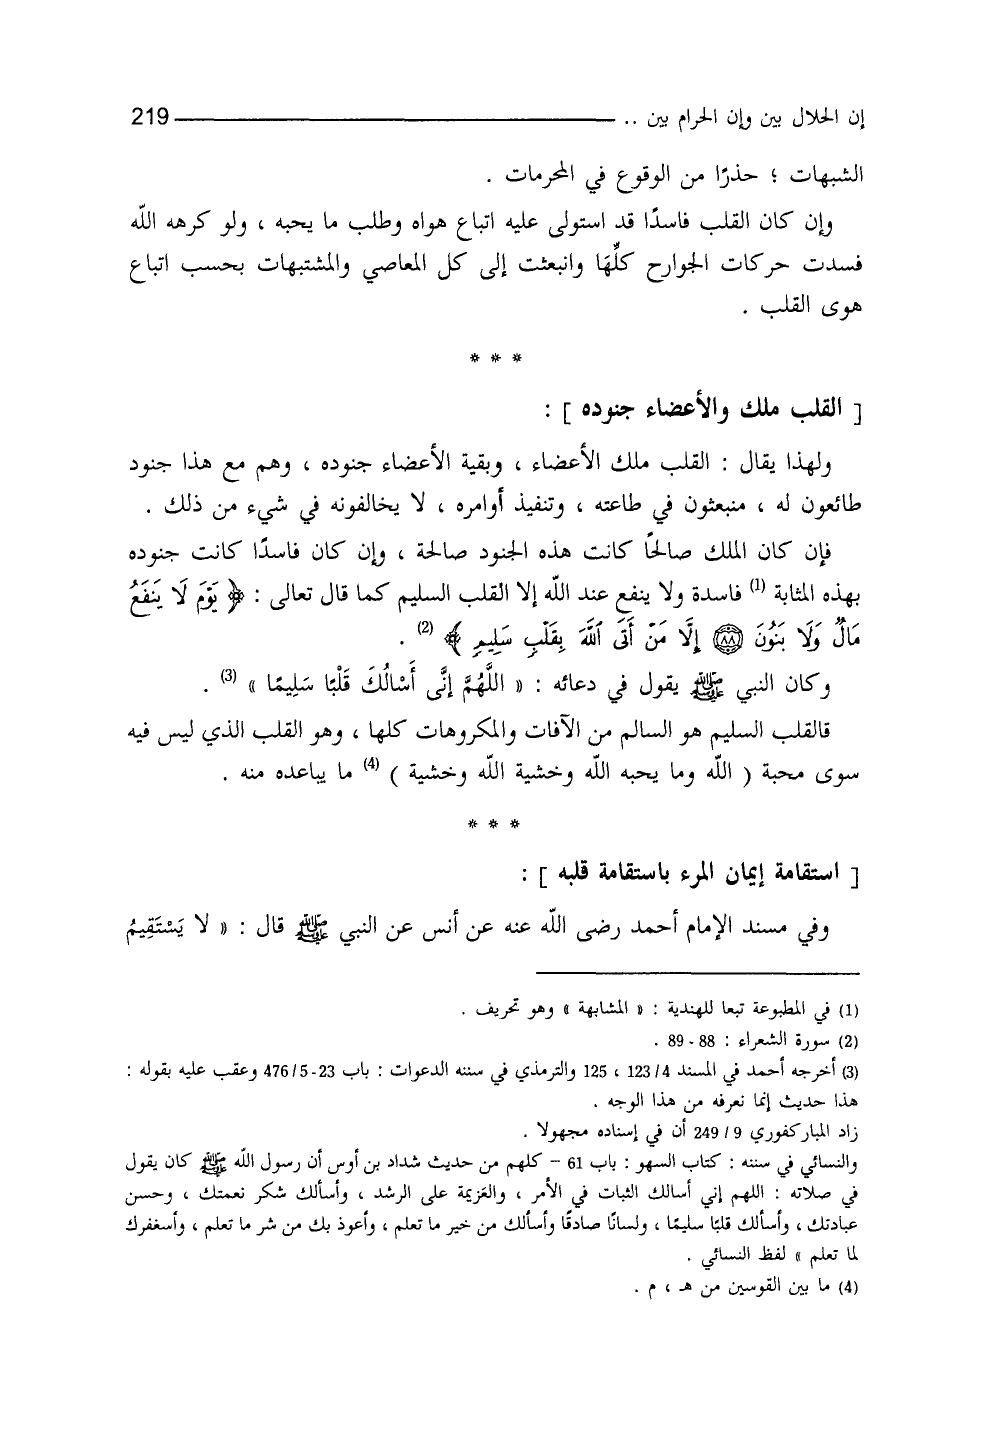 إن الحلال بين وإن الحرام بين .. 219
الشبهات ؛ حذرًا من الوقوع في المحرمات .
وإن كان القلب فاسدًا قد استولى عليه اتباع هواه وطلب ما يحبه ، ولو كرهه اللّه
فسدت حركات الجوارح كلِّهَا وانبعثت إلى كل المعاصي والمشتبهات بحسب اتباع
هوى القلب .
* * *
[ القلب ملك والأعضاء جنوده ] :
ولهذا يقال : القلب ملك الأعضاء ، وبقية الأعضاء جنوده ، وهم مع هذا جنود
طائعون له ، منبعثون في طاعته ، وتنفيذ أوامره ، لا يخالفونه في شيء من ذلك .
فإن كان الملك صالحًا كانت هذه الجنود صالحة ، وإن كان فاسدًا كانت جنوده
بهذه المثابة (1) فاسدة ولا ينفع عند اللّه إلا القلب السليم كما قال تعالى : ﴿ يَوْمَ لَا يَنفَعُ
مَالٌ وَلَا بَنُونَ ۝٨٨ إِلَّا مَنْ أَتَى ٱللَّهَ بِقَلْبٍ سَلِيمٍ ﴾ (2) .
وكان النبي ﷺ يقول في دعائه : « اللَّهُمَّ إنَّى أَسْالُكَ قَلْبًا سَلِيمًا » (3) .
قالقلب السليم هو السالم من الآفات والمكروهات كلها ، وهو القلب الذي ليس فيه
سوى محبة ( اللّه وما يحبه اللّه وخشية اللّه وخشية ) (4) ما يباعده منه .
* * *
[ استقامة إيمان المرء باستقامة قلبه ] :
وفي مسند الإمام أحمد رضى اللّه عنه عن أنس عن النبي ﷺ قال : « لا يَسْتَقِيمُ
(1) في المطبوعة تبعا للهندية : « المشابهة » وهو تحريف .
(2) سورة الشعراء : 88 - 89 .
(3) أخرجه أحمد في المسند 123/4 ، 125 والترمذي في سننه الدعوات : باب 23-476/5 وعقب عليه بقوله :
هذا حديث إنما نعرفه من هذا الوجه .
زاد المباركفوري 9 / 249 أن في إسناده مجهولا .
والنسائي في سننه : كتاب السهو : باب 61 – كلهم من حديث شداد بن أوس أن رسول اللّه ﷺ كان يقول
في صلاته : اللهم إني أسالك الثبات في الأمر ، والعَزيمة على الرشد ، وأسألك شكر نعمتك ، وحسن
عبادتك ، وأسألك قلبًا سليمًا ، ولسانًا صادقًا وأسألك من خير ما تعلم ، وأعوذ بك من شر ما تعلم ، وأسغفرك
لما تعلم » لفظ النسائي .
(4) ما بين القوسين من هـ ، م .